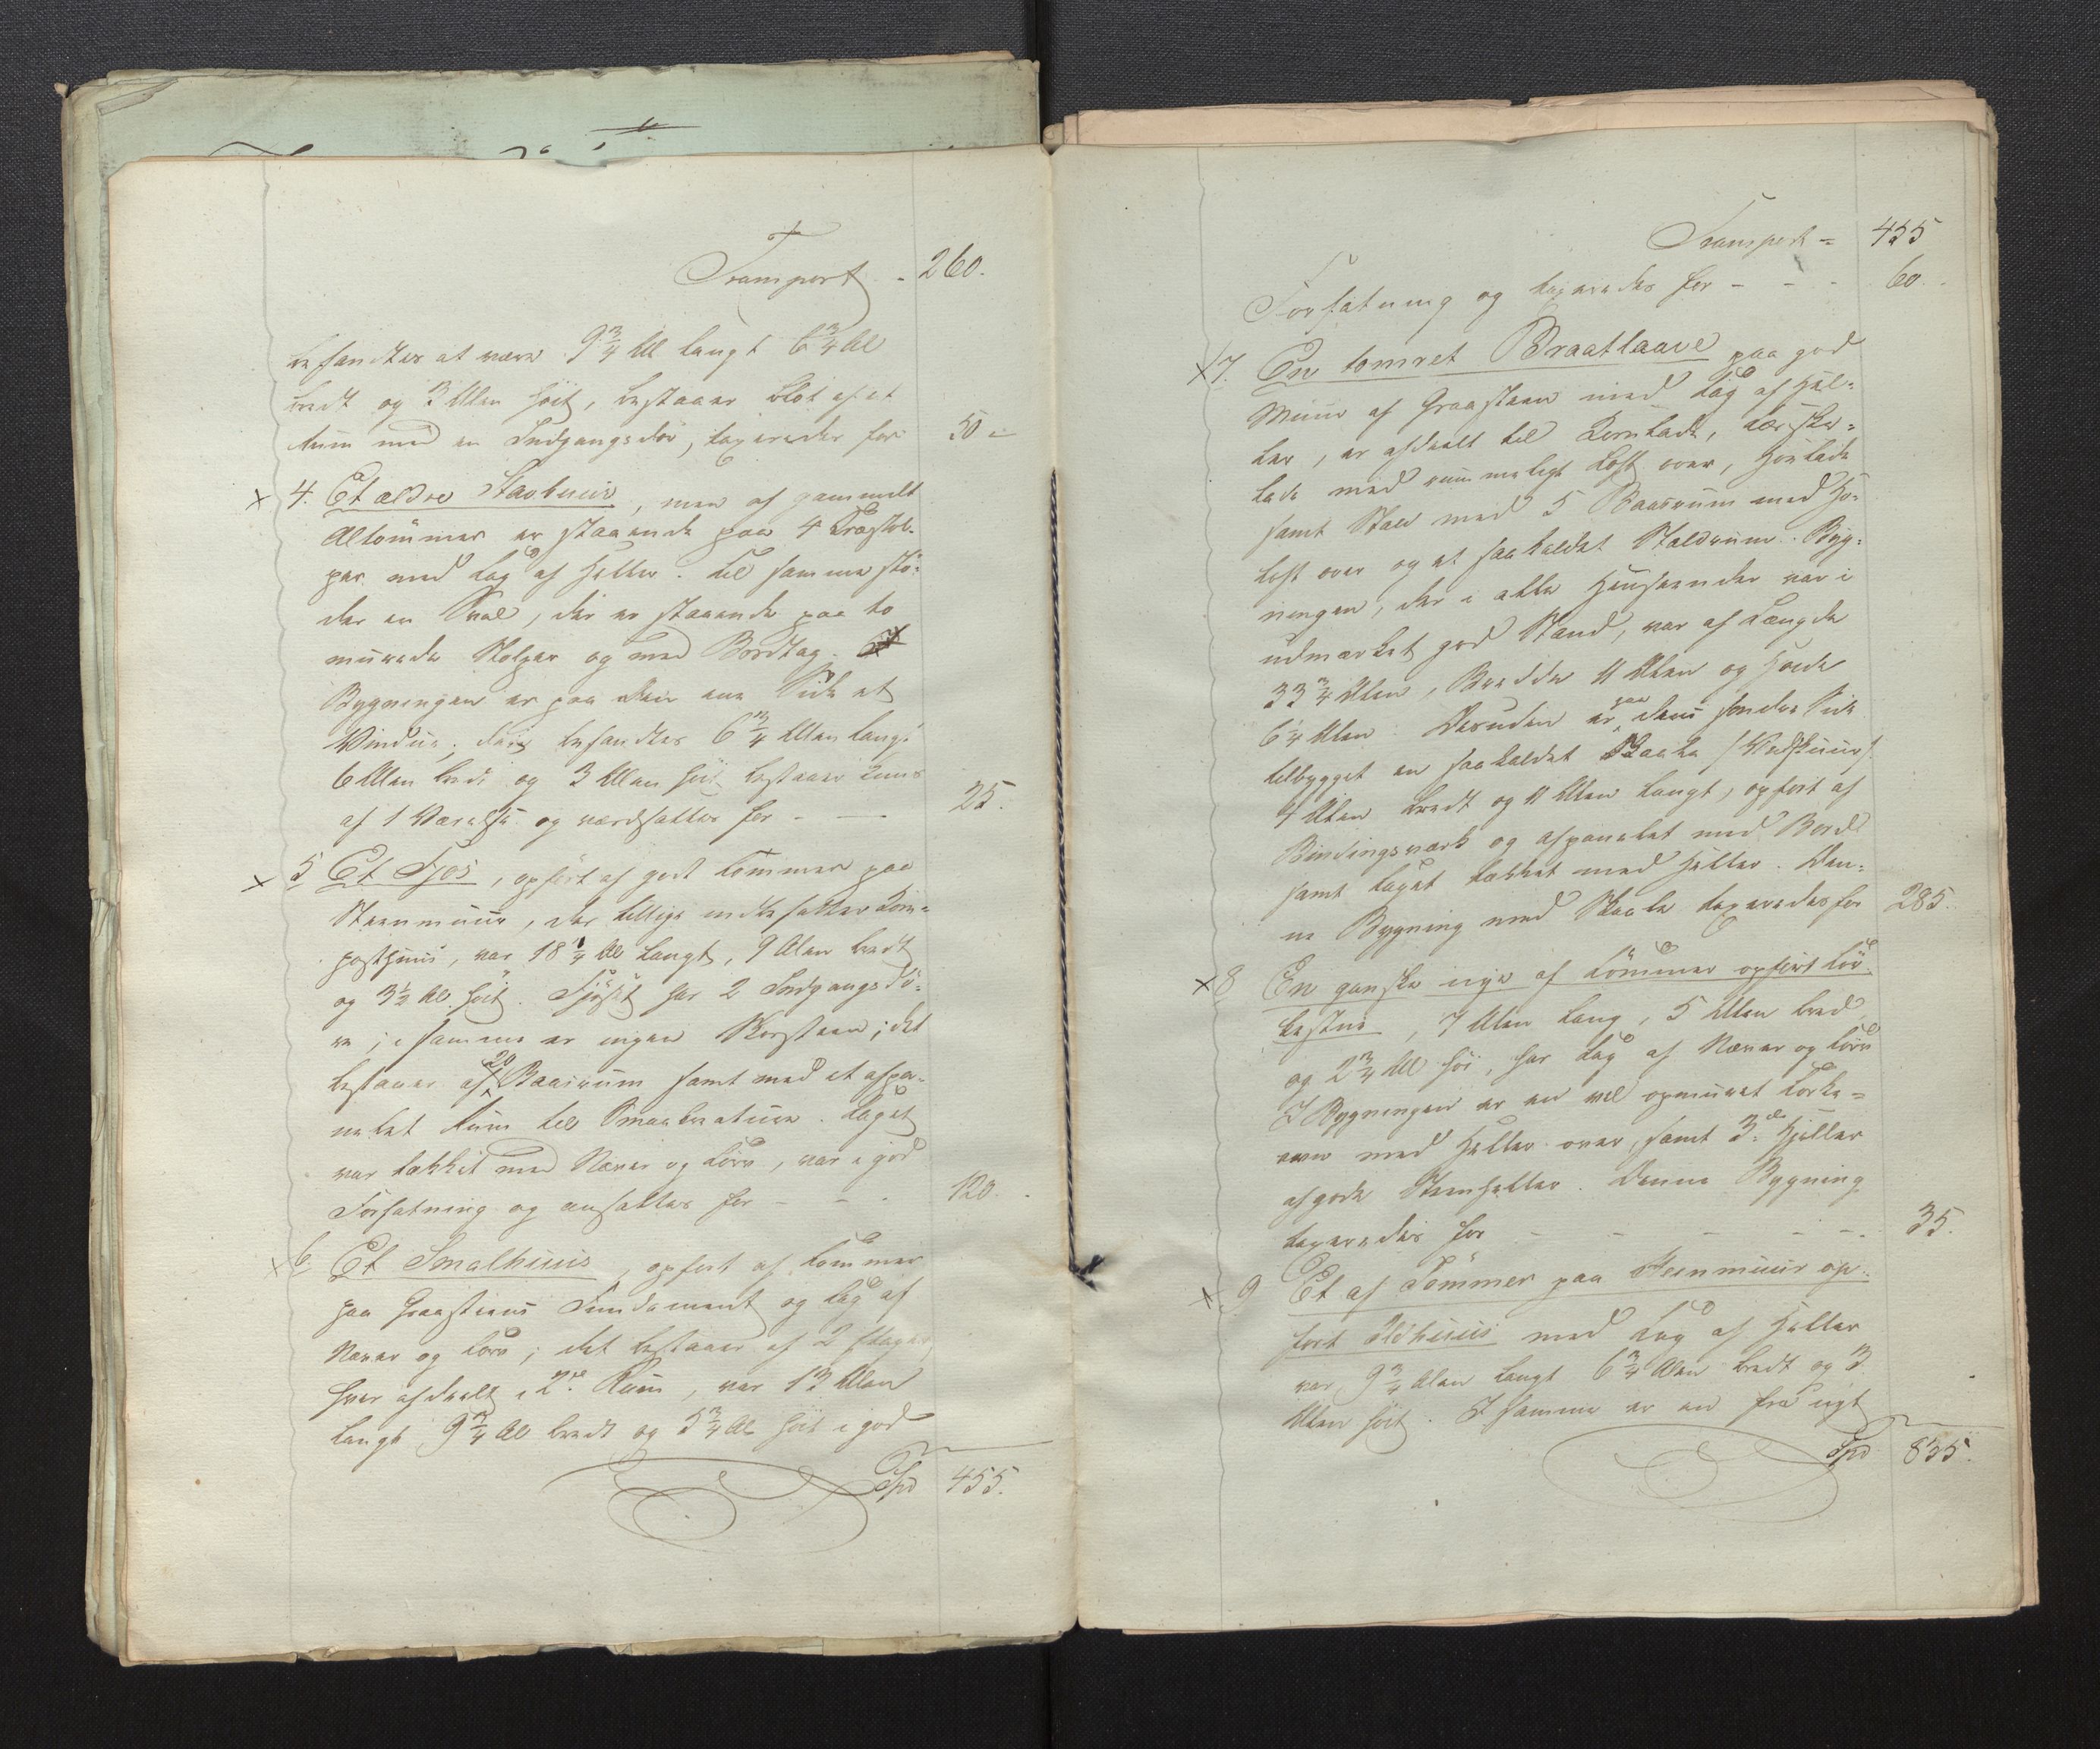 Transport - 260.
befandtes at være 9 3/4 Al langt 6 3/4 Al
bredt og 3 Alen høit, bestaaer blot af et
Rum med en Indgangsdør, taxeredes for 50 -
x 4. Et ældre Stabuur, men af gammelt
Altømmer er staaende paa 4 Træstol-
per med Tag af Heller. Til samme stø-
der en Sval, der er staaende paa to
murede Stolper og med Bordtag.
Bygningen er paa den ene Side et
Vindue; den befandtes 6 3/4 Alen langt
6 Alen bredt og 3 Alen høit bestaaer kuns
af 1 Værelse og værdsattes for - — 25.
x 5 Et Fjøs, opført af godt Tømmer paa
Steenmuur, der tillige indbefatter Kom-
posthuus, var 18 1/4 Al langt, 9 Alen bredt
og 3 1/2 Al. høit. Fjøset har 2 Indgangsdø-
re; i samme er ingen Skorsteen; det
bestaaer af 20 Baasrum samt med et afpa-
nelet Rum til Smaakreature. Taget
var tækket med Næver og Torv, var i god
Forfatning og ansattes for - - - 120.
x 6. Et Smalhuus, opført af Tømmer
paa Graasteens Fundament og Tag af
Næver og Torv; det bestaaer af 2 Etager,
hver afdeelt i 2de Rum, var 13 Alen
langt 9 3/4 Al bredt og 5 3/4 Al høit i god
Spd 455.
Transport = 455
Forfatning og taxeredes for - - - 60.
x 7. En tømret Braatlaave paa god
Muur af Graasteen med Tag af Hel-
ler, er afdeelt til Kornlade, Tærske-
lade med rummeligt Loft over, Høelade
samt Stald med 5 Baasrum med Hø-
loft over og et saakaldet Staldrum. Byg-
ningen, der i alle Henseender var i
udmærket god Stand, var af Længde
33 3/4 Alen, Bredde 11 Alen og Høide
6 1/4 Alen. Desuden er paa dens søndre Side
tilbygget en saakaldet Skaale /:Vedskuur:/
4 Alen bredt og 11 Alen langt, opført af
Bindingsværk og afpanelet med Bord
samt Taget tækket med Heller. Den-
ne Bygning med Skaale taxeredes for 285.
x 8 En ganske nye af Tømmer opført Tør-
kestue, 7 Alen lang, 5 Alen bred
og 2 3/4 Al høi, har Tag af Næver og Torv
I Bygningen er en vel opmuret Tørke-
ovn med Heller over, samt 3de Hjeller
af gode Steenheller. Denne Bygning
taxeredes for - - - - - - 35.
x 9 Et af Tømmer paa Steenmuur op-
ført Ildhuus med Tag af Heller
var 9 3/4 Alen langt 6 3/4 Alen bredt og 3
Alen høit. I samme er en fra nyt
Spd 835.